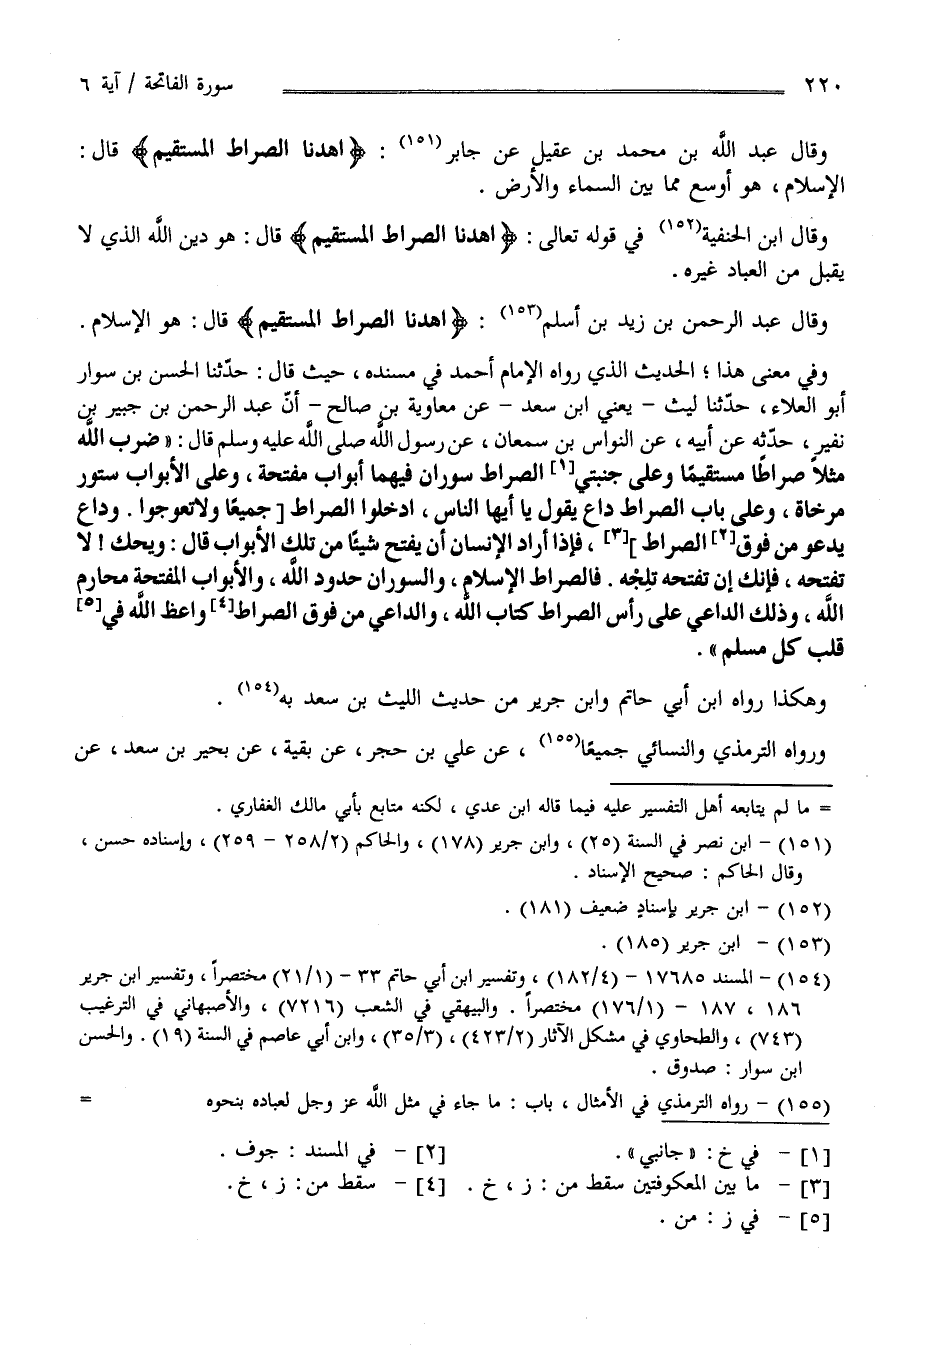 ٢٢٠ سورة الفاتحة / آية ٦
وقال عبد الله بن محمد بن عقيل عن جابر(١٥١) : ﴿اهدنا الصراط المستقيم﴾ قال :
الإسلام ، هو أوسع مما بين السماء والأرض .
وقال ابن الحنفية(١٥٢) في قوله تعالى : ﴿اهدنا الصراط المستقيم﴾ قال : هو دين الله الذي لا
يقبل من العباد غيره .
وقال عبد الرحمن بن زيد بن أسلم(١٥٣) : ﴿اهدنا الصراط المستقيم﴾ قال : هو الإسلام .
وفي معنى هذا ؛ الحديث الذي رواه الإمام أحمد في مسنده ، حيث قال : حدّثنا الحسن بن سوار
أبو العلاء ، حدّثنا ليث - يعني ابن سعد - عن معاوية بن صالح - أنّ عبد الرحمن بن جبير بن
نفير ، حدّثه عن أبيه ، عن النواس بن سمعان ، عن رسول الله صلى الله عليه وسلم قال : « ضرب الله
مثلاً صراطًا مستقيمًا وعلى جنبتي[١] الصراط سوران فيهما أبواب مفتحة ، وعلى الأبواب ستور
مرخاة ، وعلى باب الصراط داع يقول يا أيها الناس ، ادخلوا الصراط [ جميعًا ولاتعوجوا . وداع
يدعو من فوق[٢] الصراط ][٣] ، فإذا أراد الإنسان أن يفتح شيئًا من تلك الأبواب قال : ويحك ! لا
تفتحه ، فإنك إن تفتحه تلِجْه . فالصراط الإسلام ، والسوران حدود الله ، والأبواب المفتحة محارم
الله ، وذلك الداعي على رأس الصراط كتاب الله ، والداعي من فوق الصراط[٤] واعظ الله في[٥]
قلب كل مسلم » .
وهكذا رواه ابن أبي حاتم وابن جرير من حديث الليث بن سعد به(١٥٤) .
ورواه الترمذي والنسائي جميعًا(١٥٥) ، عن علي بن حجر ، عن بقية ، عن بحير بن سعد ، عن
= ما لم يتابعه أهل التفسير عليه فيما قاله ابن عدي ، لكنه متابع بأبي مالك الغفاري .
(١٥١) - ابن نصر في السنة (٢٥) ، وابن جرير (١٧٨) ، والحاكم (٢٥٨/٢ - ٢٥٩) ، وإسناده حسن ،
وقال الحاكم : صحيح الإسناد .
(١٥٢) - ابن جرير بإسنادٍ ضعيف (١٨١) .
(١٥٣) - ابن جرير (١٨٥) .
(١٥٤) - المسند ١٧٦٨٥ - (١٨٢/٤) ، وتفسير ابن أبي حاتم ٣٣ - (٢١/١) مختصراً ، وتفسير ابن جرير
١٨٦ ، ١٨٧ - (١٧٦/١) مختصراً . والبيهقي في الشعب (٧٢١٦) ، والأصبهاني في الترغيب
(٧٤٣) ، والطحاوي في مشكل الآثار (٤٢٣/٢) ، (٣٥/٣) ، وابن أبي عاصم في السنة (١٩) . والحسن
ابن سوار : صدوق .
(١٥٥) - رواه الترمذي في الأمثال ، باب : ما جاء في مثل الله عز وجل لعباده بنحوه =
[١] - في خ : « جانبي » . [٢] - في المسند : جوف .
[٣] - ما بين المعكوفتين سقط من : ز ، خ . [٤] - سقط من : ز ، خ .
[٥] - في ز : من .